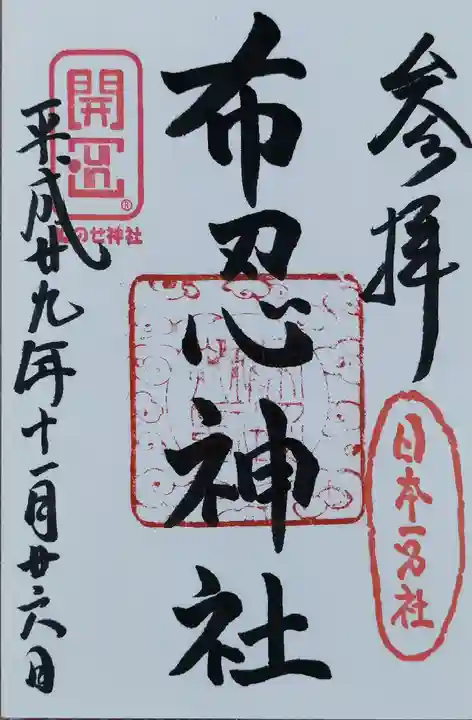 参拝
日本一名社
布忍神社
開
®
のせ神社
平成廿九年十一月廿六日